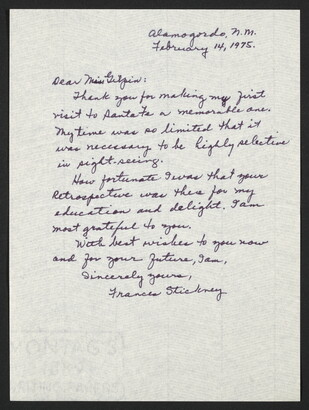 Alamogordo, N.M.
February 14, 1975.
Dear Miss Gilpin:
Thank you for making my first
visit to Santa Fe a memorable one.
My time was so limited that it
was necessary to be highly selective
in sight-seeing.
How fortunate I was that your
Retrospective was there for my
education and delight. I am
most grateful to you.
With best wishes to you now
and for your future, I am,
Sincerely yours,
Frances Stickney